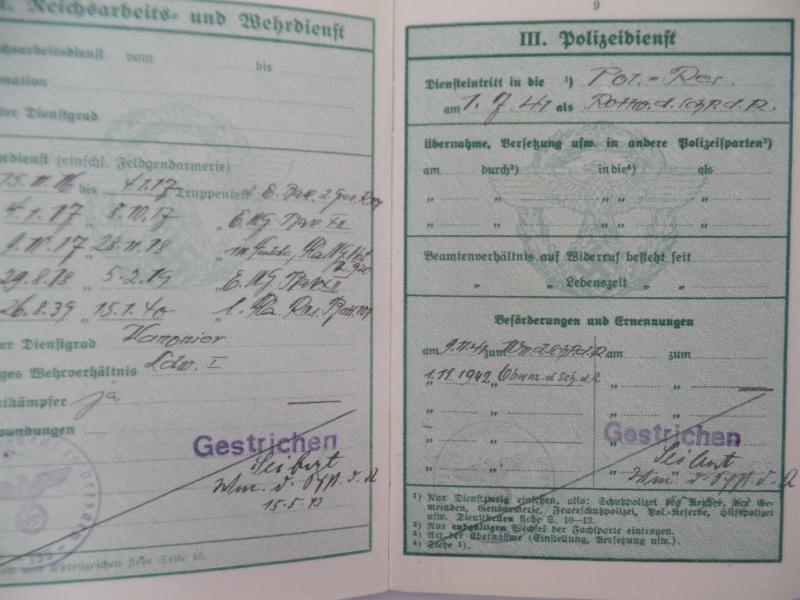 . Reichsarbeits- und Wehrdienst
hsarbeitsdienst vom bis
mation
er Dienstgrad
dienst (einschl. Feldgendarmerie)
15.11.16 bis 4.1.17 Truppenteil
4.1.17 „ 8.10.17 „ E. MG
9.11.17 „ 28.11.18 „
29.8.18 „ 5.2.19 „ E. MG
26.8.39 „ 15.1.40 „ l. Fla. Res.
er Dienstgrad Kanonier
ges Wehrverhältnis Ldw. I
ntkämpfer ja
wundungen
Gestrichen
Seibert
Wm. d. Sch. d. R
15.5.43
en und Ehrenzeichen siehe Seite 10.
9
III. Polizeidienst
Diensteintritt in die ¹) Pol.-Res.
am 1.7.41 als Rottw. d. Sch. P. d. R.
Übernahme, Versetzung usw. in andere Polizeisparten²)
am durch³) in die⁴) als
„ „ „ „
„ „ „ „
Beamtenverhältnis auf Widerruf besteht seit
„ „ Lebenszeit „
Beförderungen und Ernennungen
am 9.11.41 zum Wm. d. Sch. P. d. R am zum
1.11.1942 „ Obwm. d. Sch. d. R „ „
„ „ „ „
„ „ „ „
„ „ „
Gestrichen
Seibert
Wm. d. Sch. d. R
¹) Nur Dienstzweig einsehen, also: Schutzpolizei des Reiches, der Ge-
meinden, Gendarmerie, Feuerschutzpolizei, Pol.-Reserve, Hilfspolizei
usw. Dienststellen siehe S. 10–13.
²) Nur endgültigen Wechsel der Fachsparte eintragen.
³) Art der Übernahme (Einstellung, Versetzung usw.).
⁴) Siehe ¹).